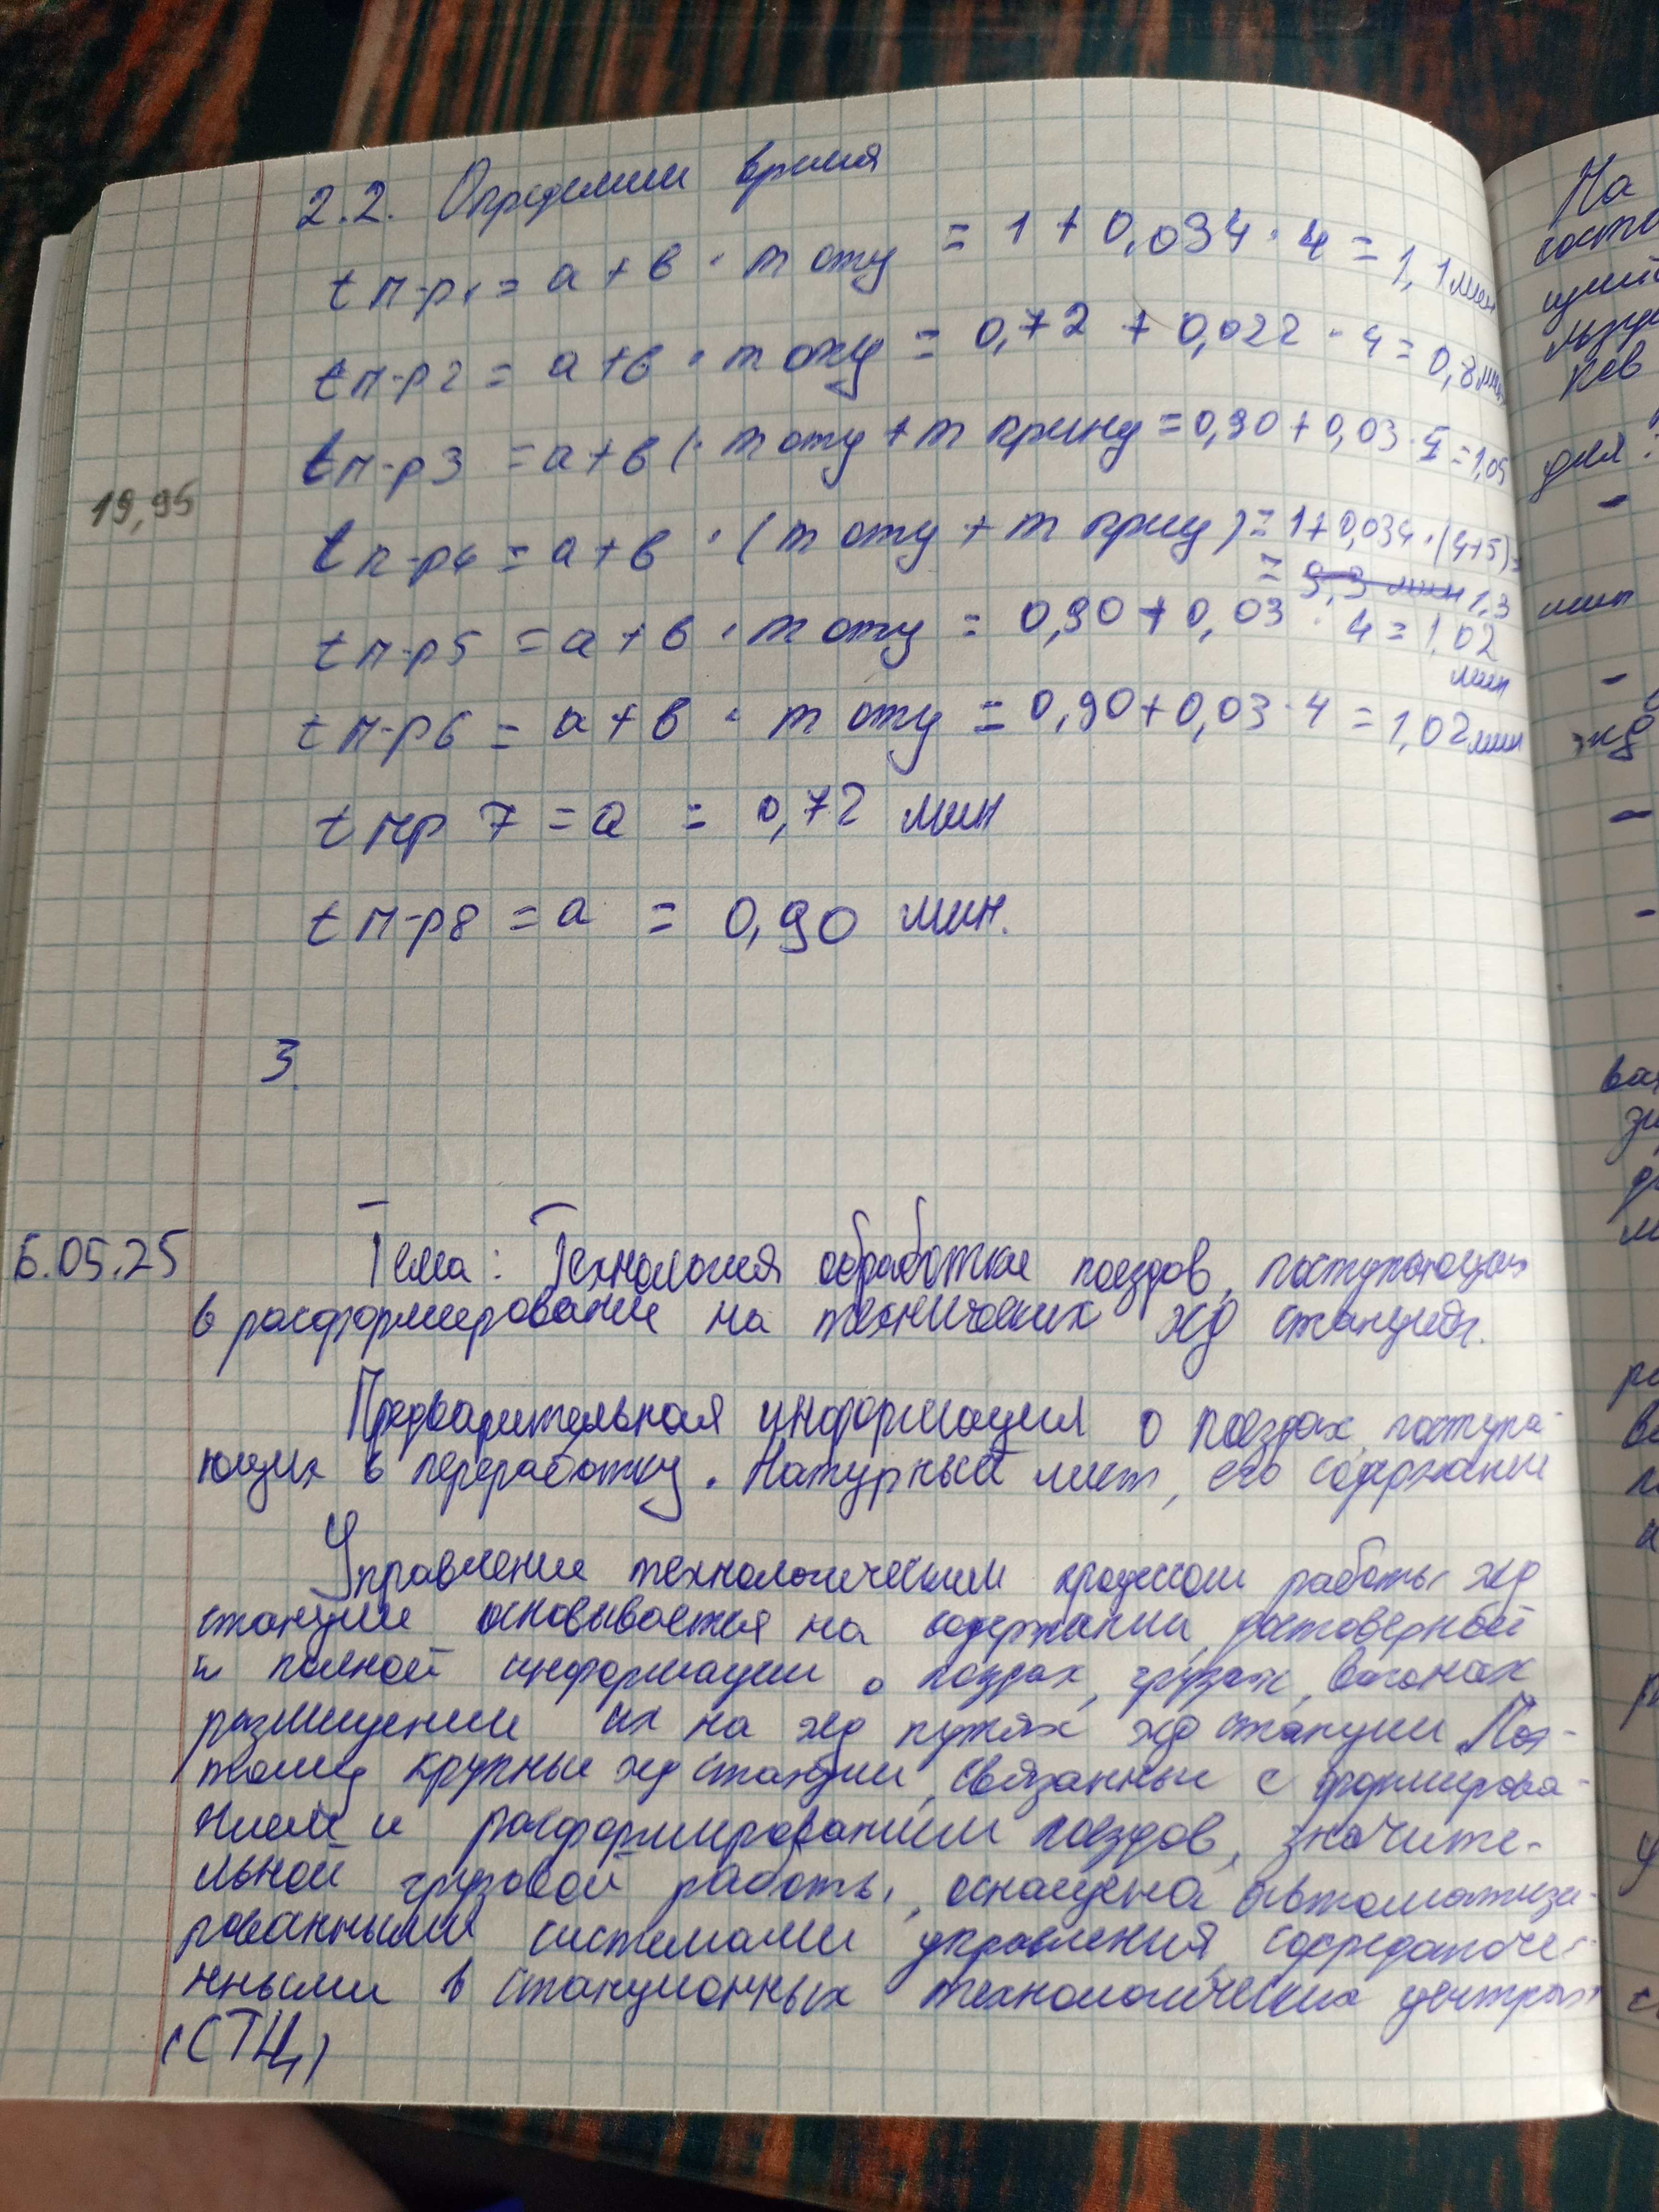 2.2. Определим время
t п-р1 = а + в · m оту = 1 + 0,034 · 4 = 1,1 мин
t п-р2 = а + в · m оту = 0,72 + 0,022 · 4 = 0,8 мин
t п-р3 = а + в ( · m оту + m прицу = 0,90 + 0,03 · 5 = 1,05
19,95
t п-р4 = а + в · (m оту + m прицу) = 1 + 0,034 · (4+5) =
= 9,3 мин 1,3
t п-р5 = а + в · m оту = 0,90 + 0,03 · 4 = 1,02
мин
t п-р6 = а + в · m оту = 0,90 + 0,03 · 4 = 1,02 мин
t пр 7 = а = 0,72 мин
t п-р8 = а = 0,90 мин.
3.
6.05.25 Тема: Технология обработки поездов, поступающих
в расформирование на технических жд станциях.
Предварительная информация о поездах, поступа-
ющих в переработку. Натурный лист, его содержание
Управление технологическим процессом работы жд
станции основывается на содержании, достоверной
и полной информации о поездах, грузах, вагонах
размещении их на жд путях жд станции Поэ-
тому крупные жд станции, связанные с формирова-
нием и расформированием поездов, значите-
льной грузовой работы, оснащена автоматизи-
рованными системами управления, сосредаточе-
нными в станционных технологических центрах
(СТЦ)
На
ций
ков
для:
-
мин
-
-
-